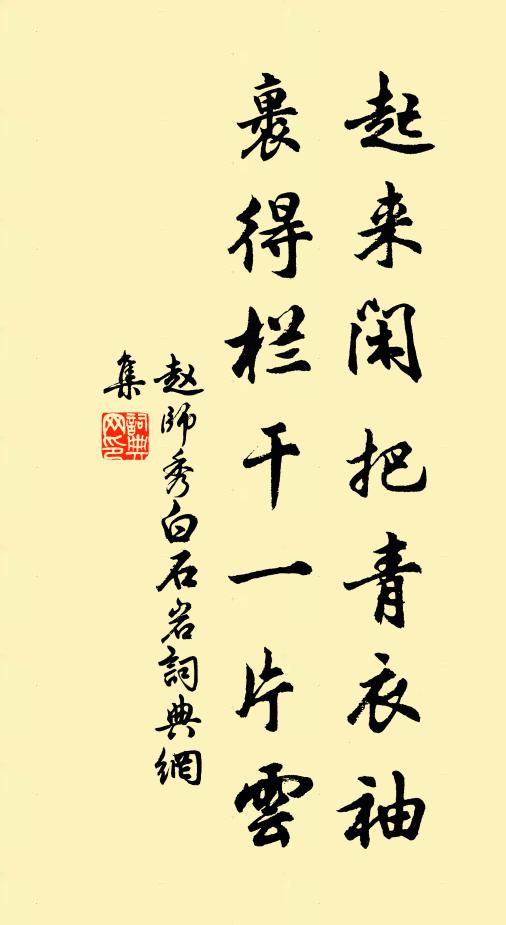 起来閑把青衣袖
裹得栏干一片雲
赵師秀白石岩詞典網
集
詞典网印